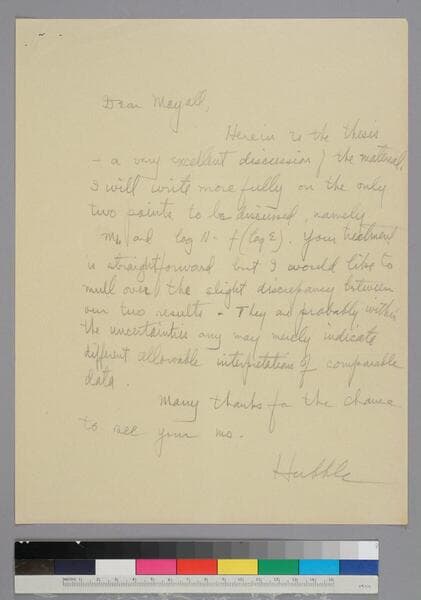 Dear Mayall,
Herein is the thesis
- a very excellent discussion of the material.
I will write more fully on the only
two points to be discussed, namely
and log N = f(log E). Your treatment
is straightforward but I would like to
mull over the slight discrepancy between
our two results - They are probably within
the uncertainties any may merely indicate
different allowable interpretations of comparable
data.
Many thanks for the chance
to see your ms.
Hubble